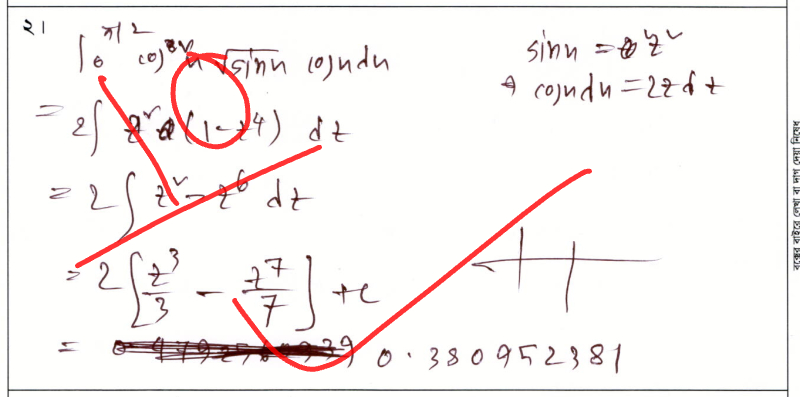 ২১
∫₀^π/2 cos²x √sinx cosxdx
sinx = z²
cosxdx = 2zdz
= 2∫ z² (1-z⁴) dz
= 2∫ z² - z⁶ dz
= 2[z³/3 - z⁷/7] + c
= 0.380952381
বক্সের বাইরে লেখা বা দাগ দেয়া নিষেধ